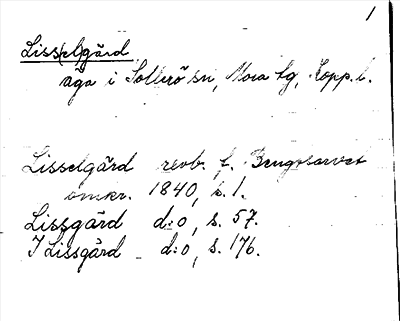 1
Liss(el)gård
äga i Sollerö sn, Mora tg, Kopp. l.
Lisselgård revb. f. Bengtsarvet
omkr. 1840, s. 1.
Lissgård d:o, s. 57.
I Lissgård d:o, s. 176.